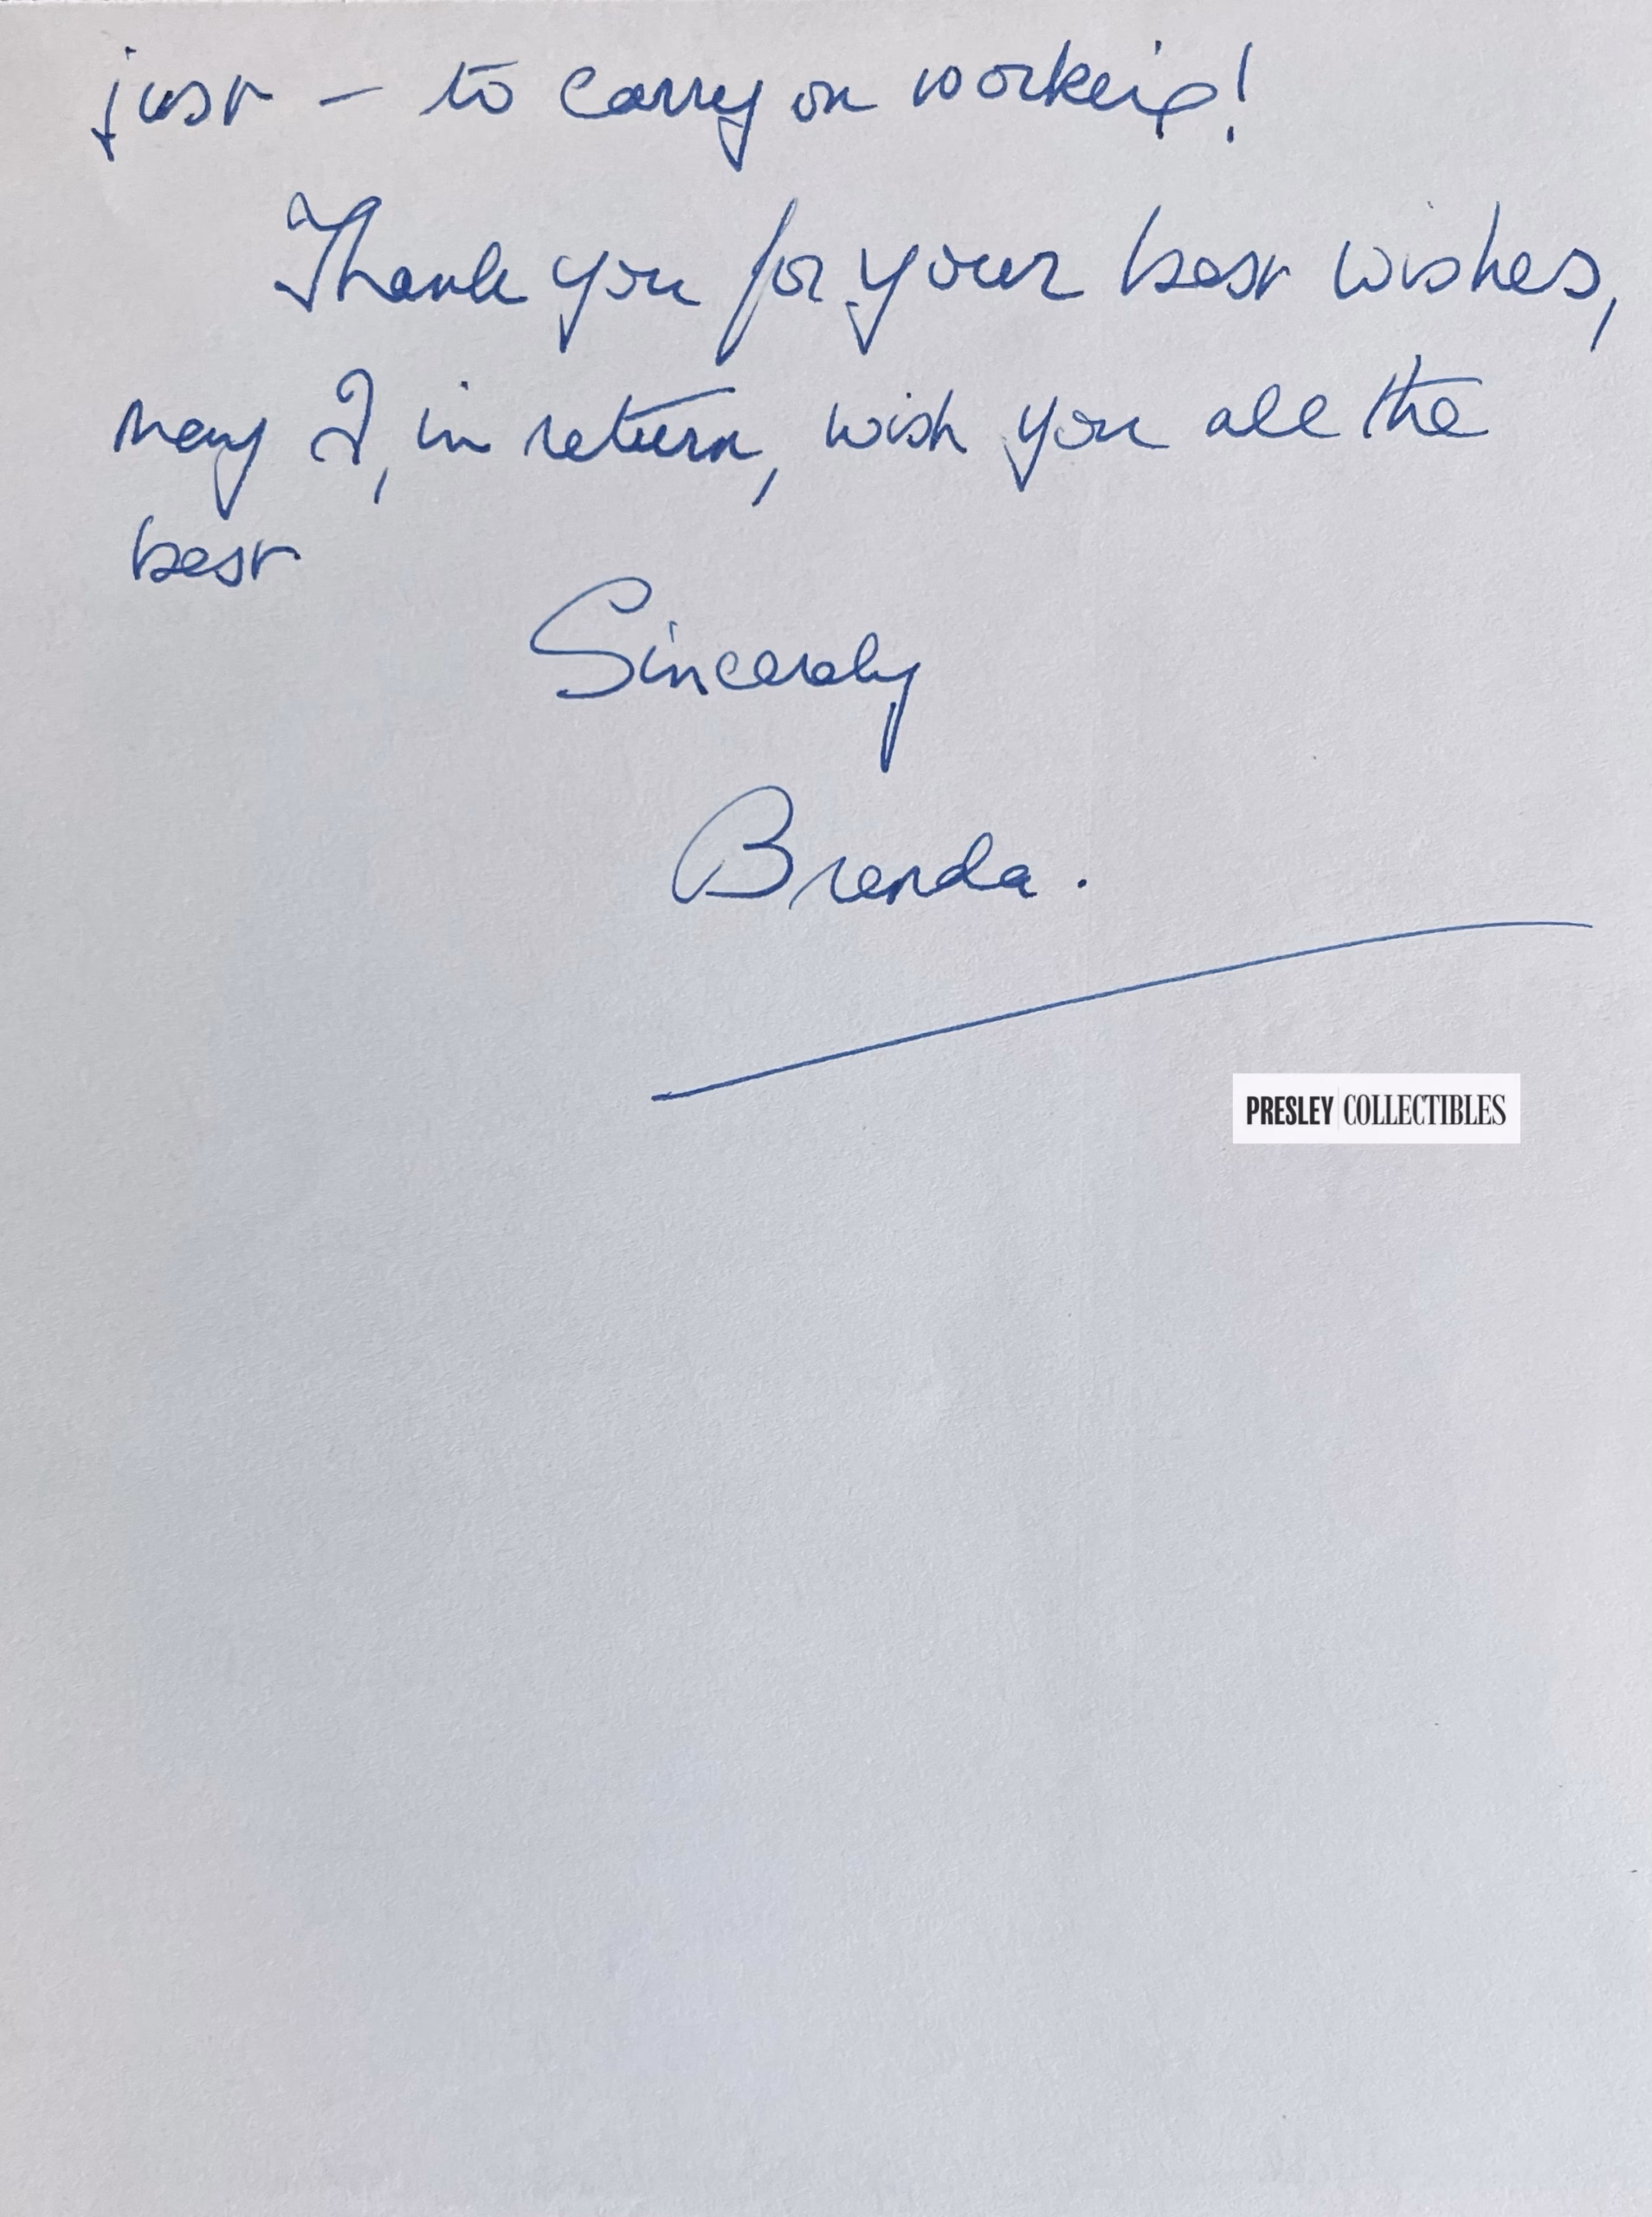 just - to carry on working!
Thank you for your best wishes,
may I, in return, wish you all the
best
Sincerely
Brenda.
PRESLEY COLLECTIBLES